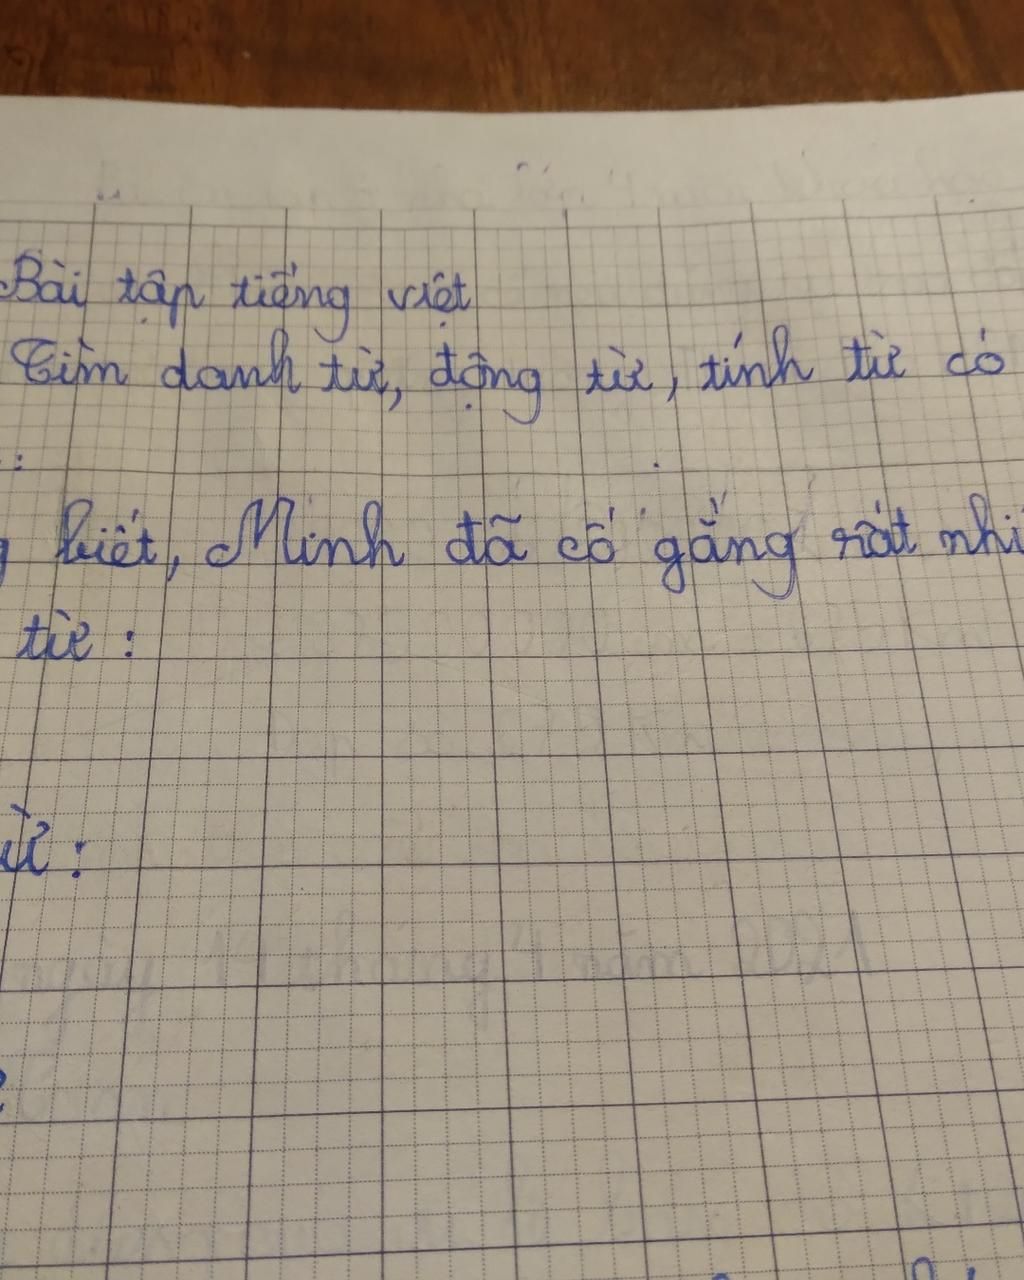 Bài tập tiếng việt
Tìm danh từ, động từ, tính từ có
:
biết, Minh đã cố gắng rất
từ :
: